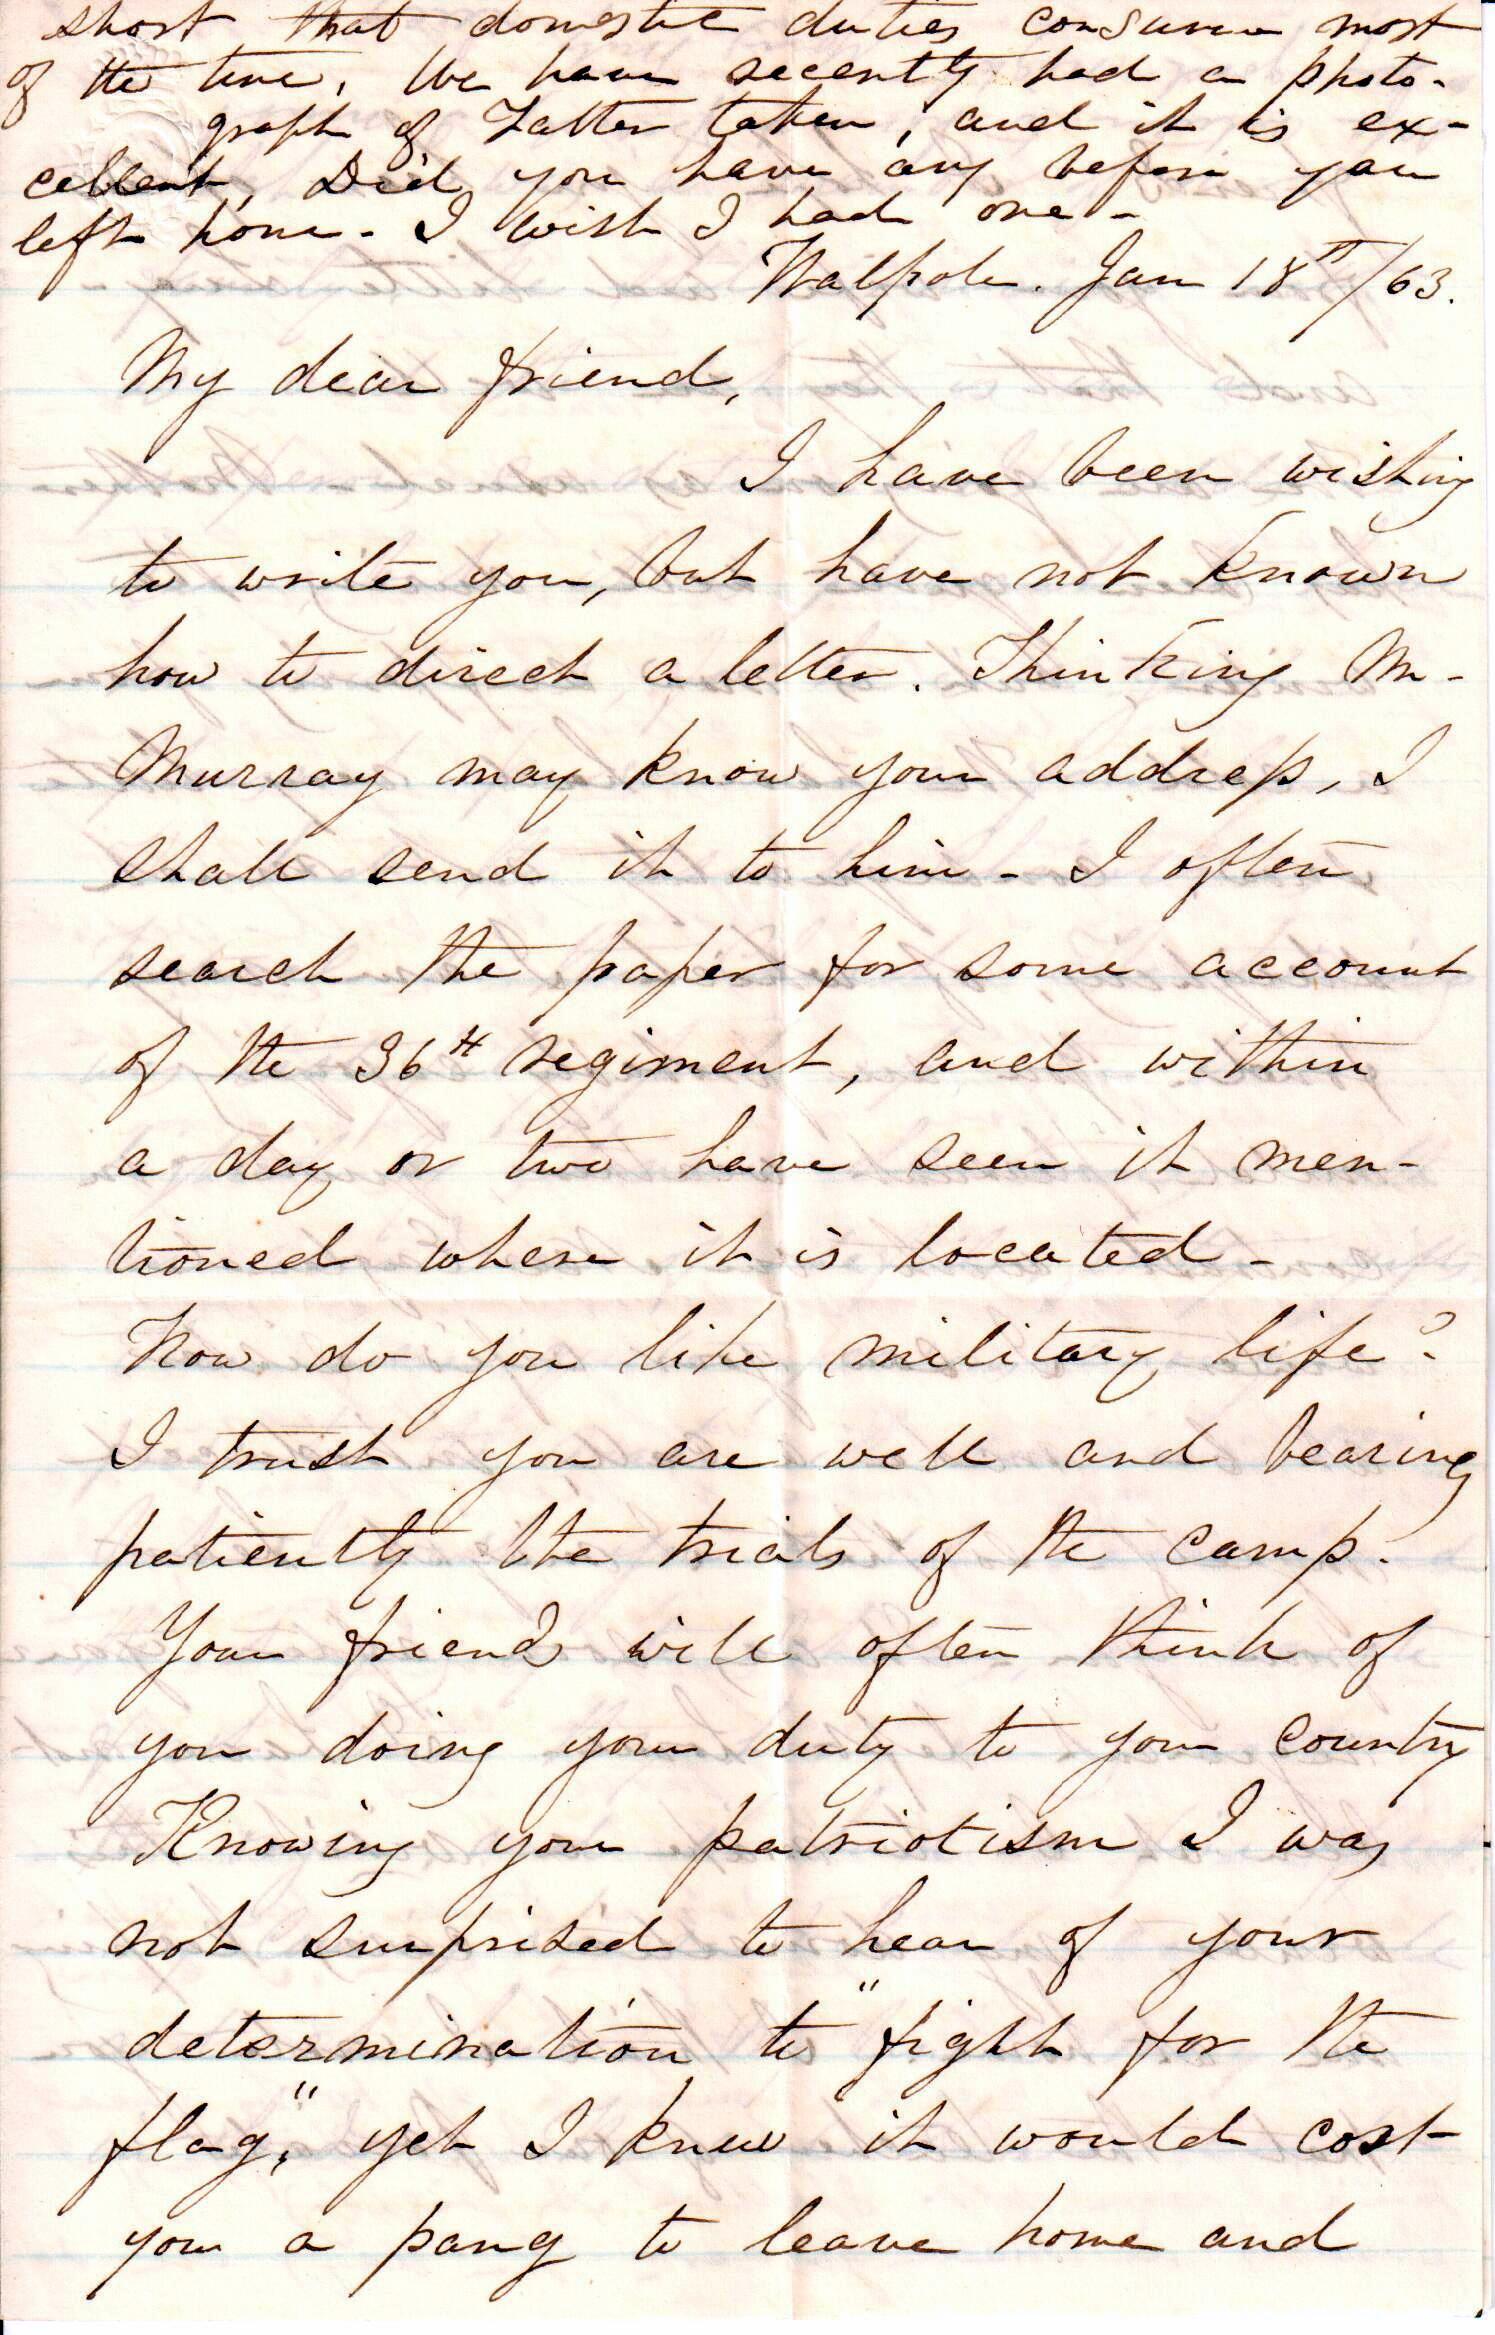 short that domestic duties consume most
of the time. We have recently had a photo-
graph of Father taken, and it is ex-
cellent, Did you have any before you
left home - I wish I had one -
Walpole. Jan 18th/63.
My dear friend,
I have been wishing
to write you, but have not known
how to direct a letter. Thinking Mr
Murray may know your address, I
shall send it to him - I often
search the paper for some account
of the 36th regiment, and within
a day or two have seen it men-
tioned where it is located -
How do you like military life?
I trust you are well and bearing
patiently the trials of the camp.
Your friends will often think of
you doing your duty to your country
Knowing your patriotism I was
not surprised to hear of your
determination to "fight for the
flag," yet I knew it would cost
you a pang to leave home and